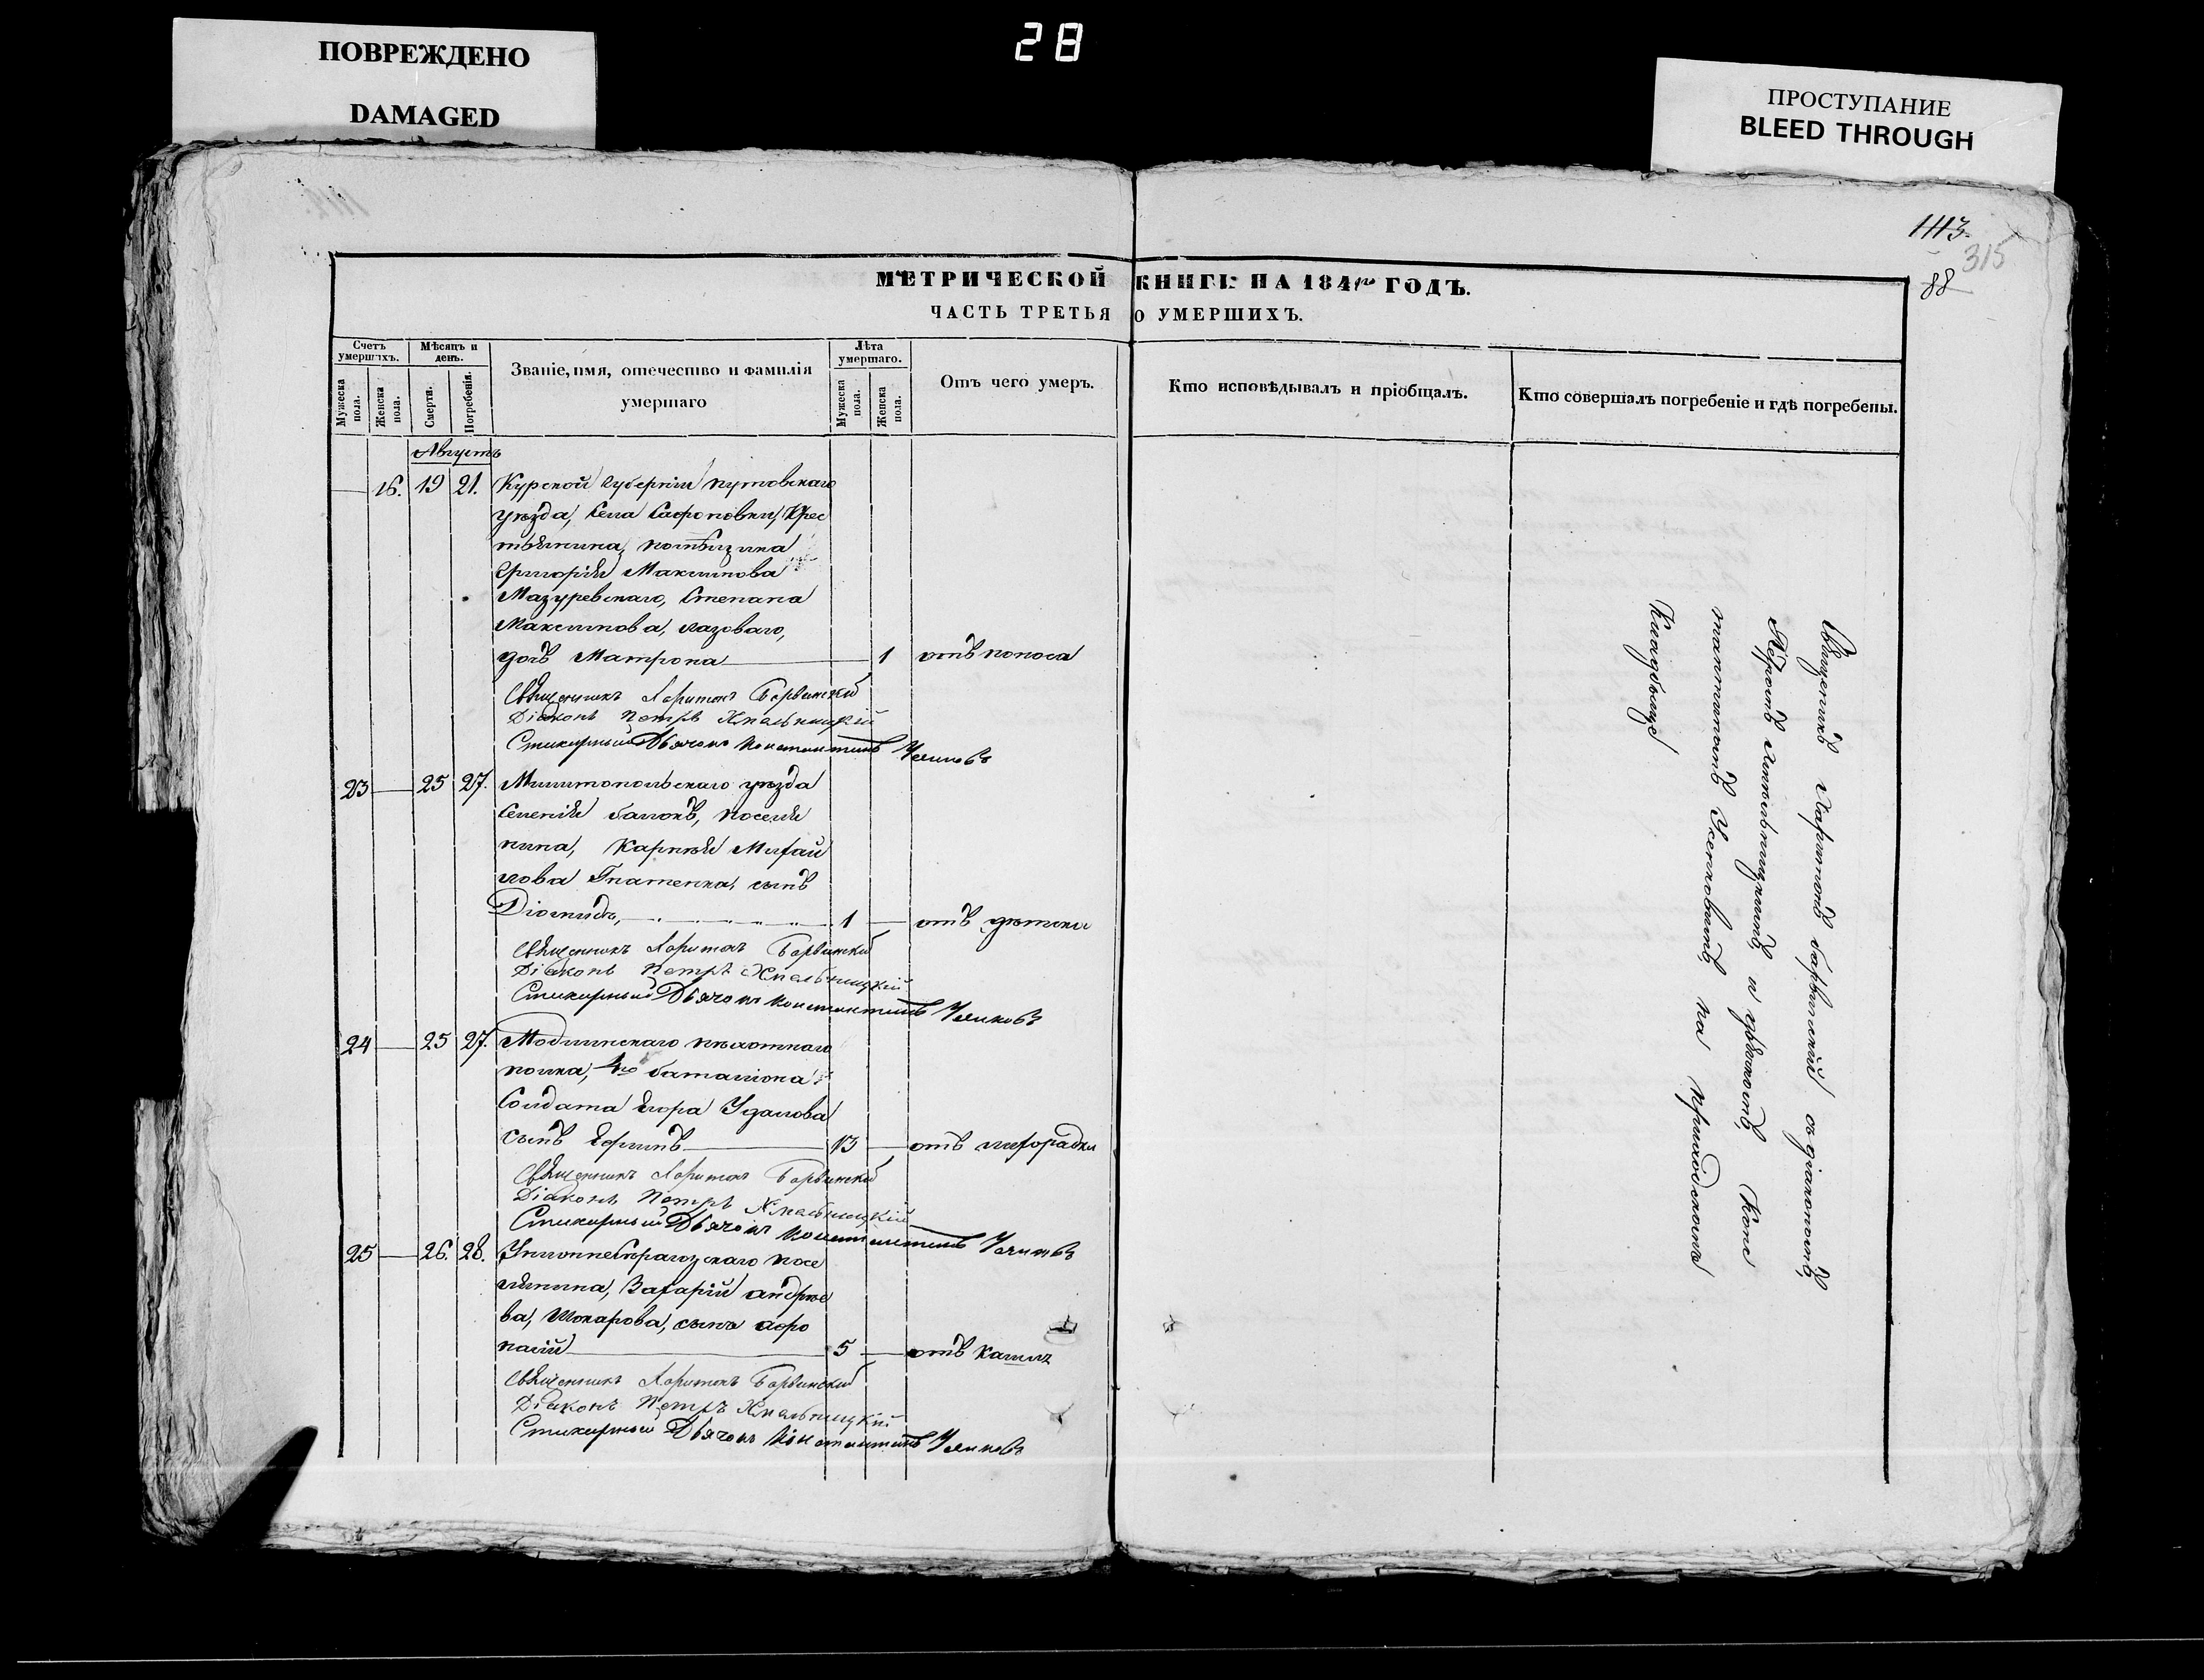 ПОВРЕЖДЕНО
DAMAGED
28
ПРОСТУПАНИЕ
BLEED THROUGH
1113
315
88
МЕТРИЧЕСКОЙ КНИГИ НА 1841го ГОДЪ.
ЧАСТЬ ТРЕТЬЯ О УМЕРШИХЪ.
Счетъ умершихъ.
Мѣсяцъ и день.
Званіе, имя, отечество и фамилія умершаго
Лѣта умершаго.
Отъ чего умеръ.
Кто исповѣдывалъ и пріобщалъ.
Кто совершалъ погребеніе и гдѣ погребены.
Мужеска пола.
Женска пола.
Смерти.
Погребенія.
Мужеска пола.
Женска пола.
Августъ
16. 19 21. Курской губерніи путовскаго
уѣзда, Села Сафоновки, Крес
тьянина, помѣщика
Григорія Максимова
Мазуревскаго, Степана
Максимова, лазоваго,
дочь Матрона 1 отъ поноса
Священникъ Харитонъ Барвинскій
Діаконъ Петръ Хмельницкій
Стихарный Дьячокъ Константинъ
23 25 27. Милитопольскаго уѣзда
Селенія балокъ, поселя
нина, Карпѣя Михай
лова Гнатенка, сынъ
Діомидъ, 1 отъ дѣтска
Священникъ Харитонъ Барвинскій
Діаконъ Петръ Хмельницкій
Стихарный Дьячокъ Константинъ
24 25 27. Модлинскаго пѣхотнаго
полка, 4го баталіона
Солдата Егора Удалова
сынъ Ефимъ 13 отъ лихорадки
Священникъ Харитонъ Барвинскій
Діаконъ Петръ Хмельницкій
Стихарный Дьячокъ Константинъ
25 26. 28. посе
лянина, Захарій андрѣе
ва, Шокарова, сынъ афо
насій 5 отъ кашля
Священникъ Харитонъ Барвинскій
Діаконъ Петръ Хмельницкій
Стихарный Дьячокъ Константинъ
Священникъ Харитонъ барвинскій съ діакономъ
Петромъ Хмельницкимъ и дьячкомъ Конс
тантиномъ на приходскомъ
Кладбищѣ